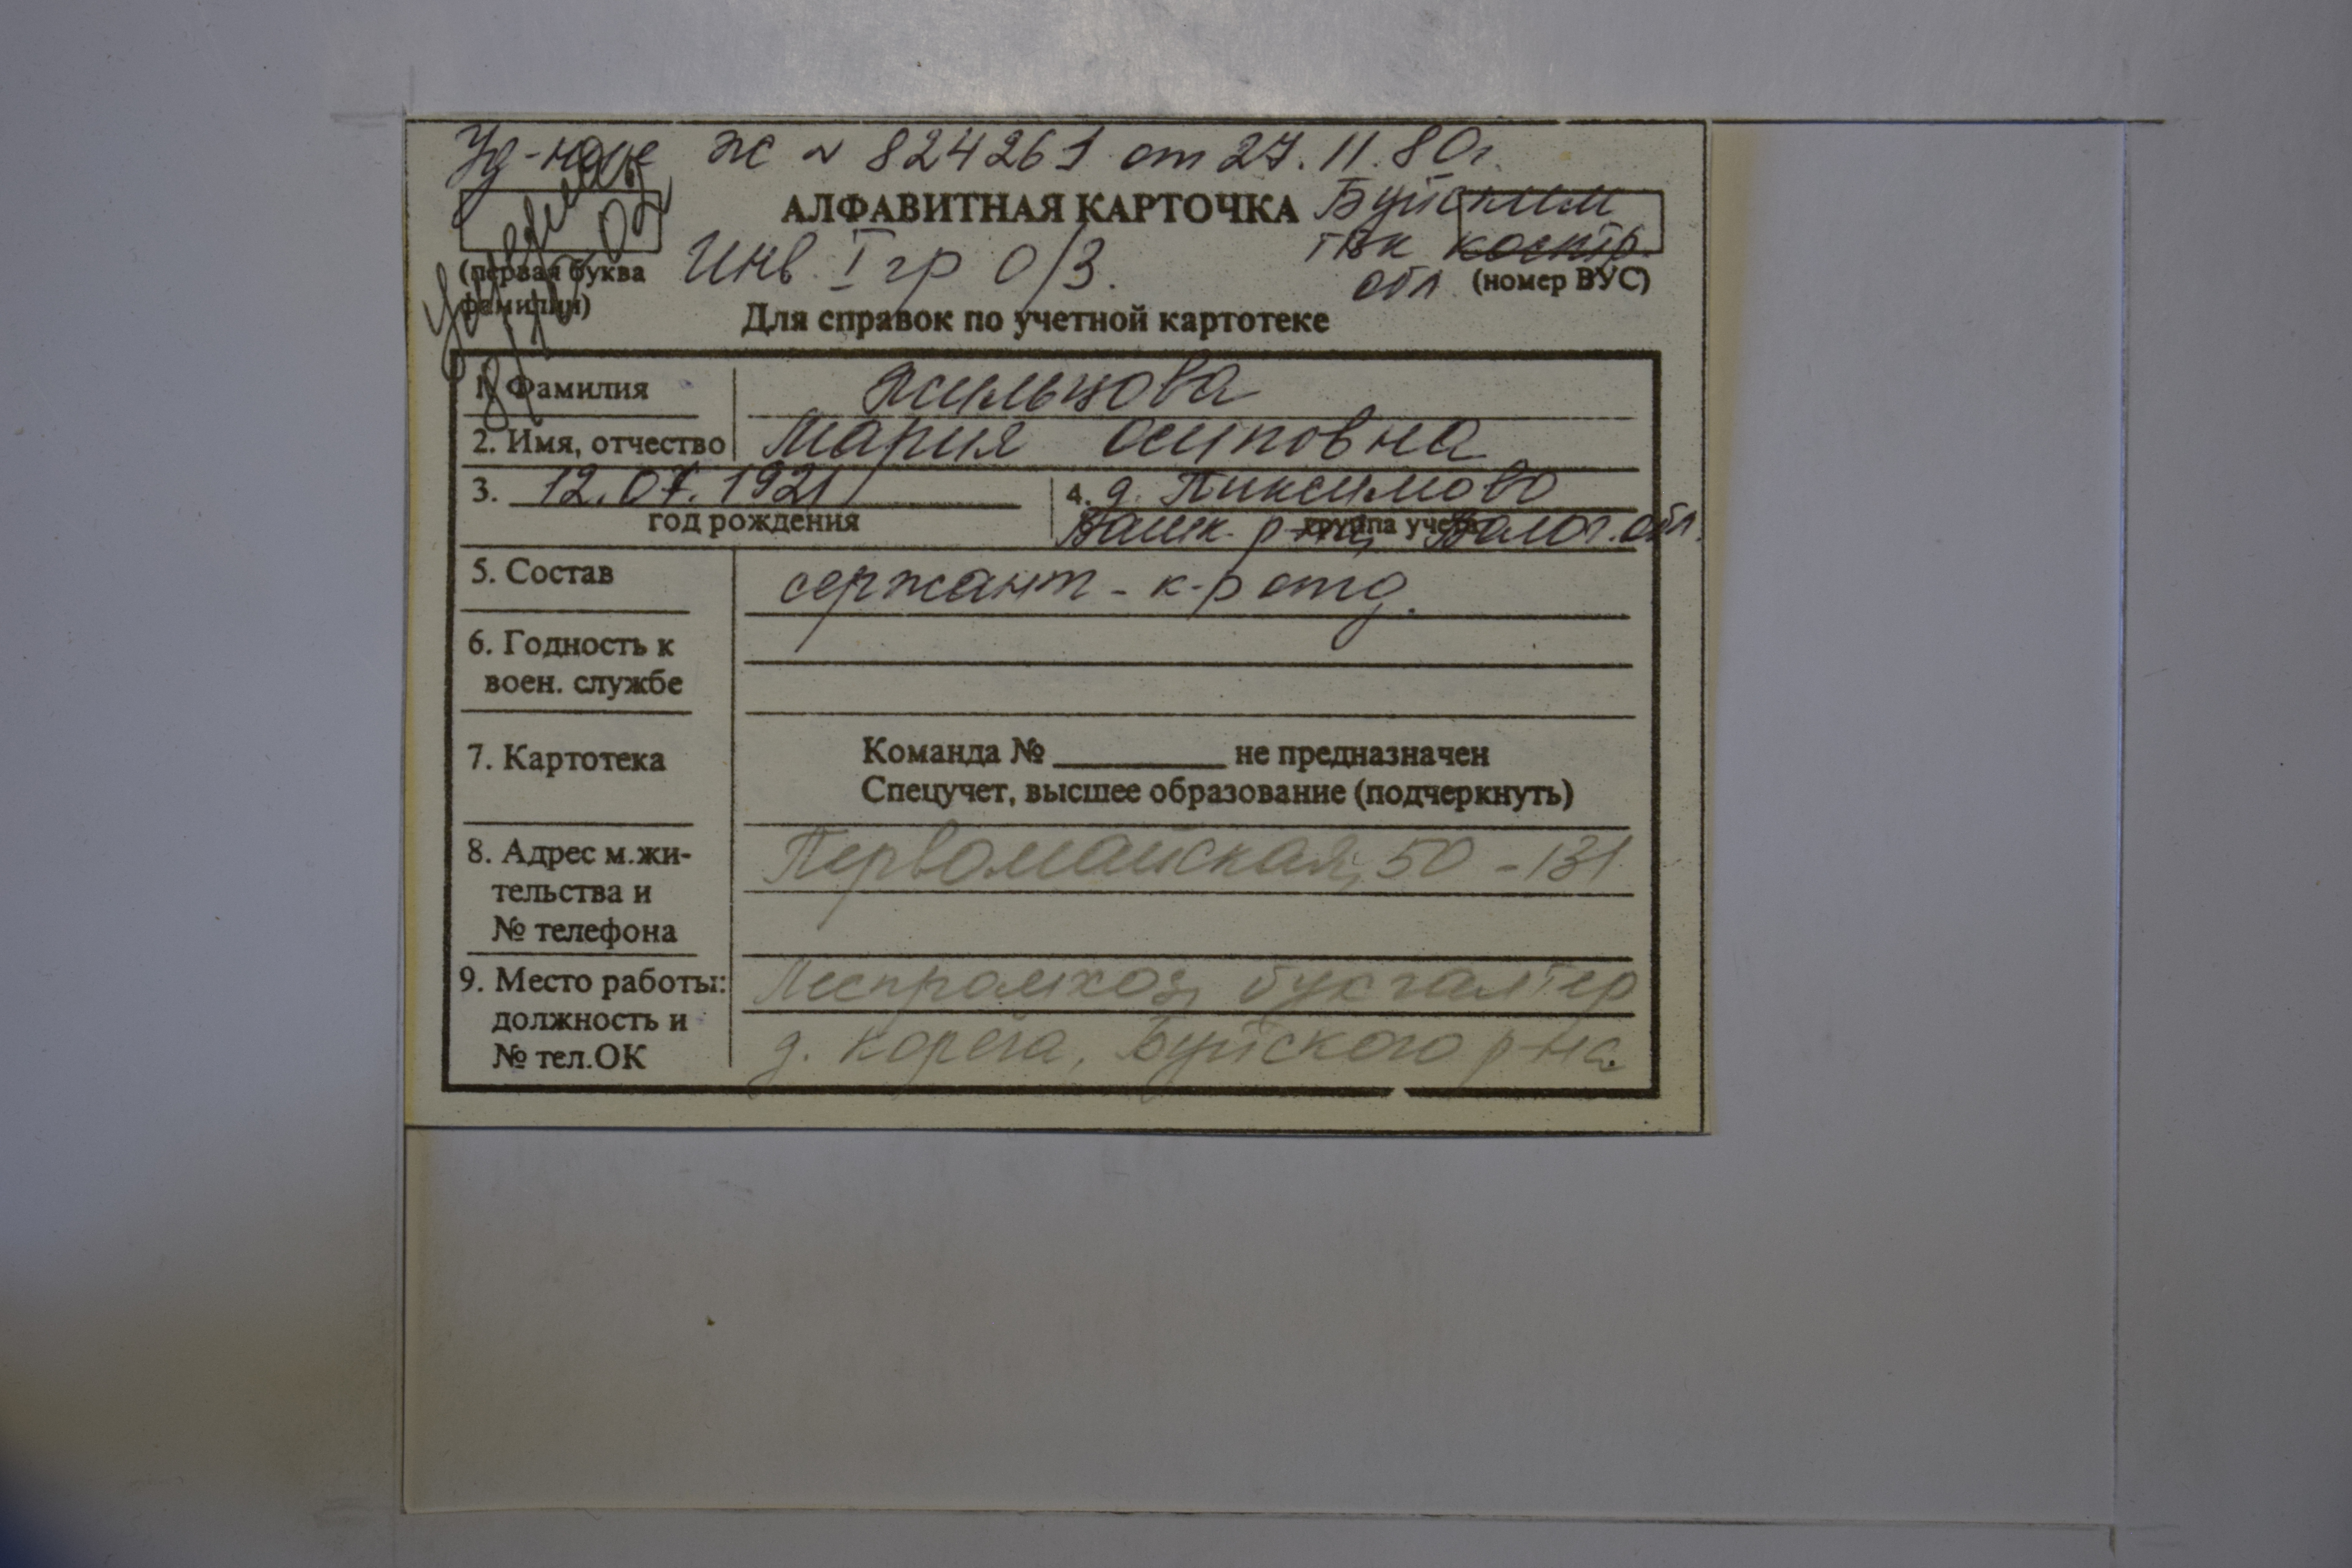 Уд-ние Ж № 824261 от 27.11.80г.
АЛФАВИТНАЯ КАРТОЧКА Буйским
(первая буква фамилии)
Инв. I гр О/З.
ГВК Костр. обл
(номер ВУС)
Для справок по учетной картотеке
1. Фамилия
2. Имя, отчество Мария Осиповна
3. 12.07.1921
год рождения
4. д. Пиксимово
группа учета
Вашк. р-на, Волог. обл.
5. Состав сержант - к-р отд.
6. Годность к
воен. службе
7. Картотека
Команда № ________ не предназначен
Спецучет, высшее образование (подчеркнуть)
8. Адрес м.жи-
тельства и
№ телефона
Первомайская, 50 - 131
9. Место работы:
должность и
№ тел.ОК
Леспромхоз, бухгалтер
д. Корега, Буйского р-на.